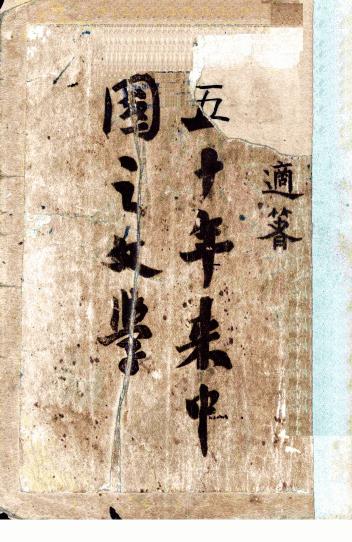 適著
五十年来中
國之文學